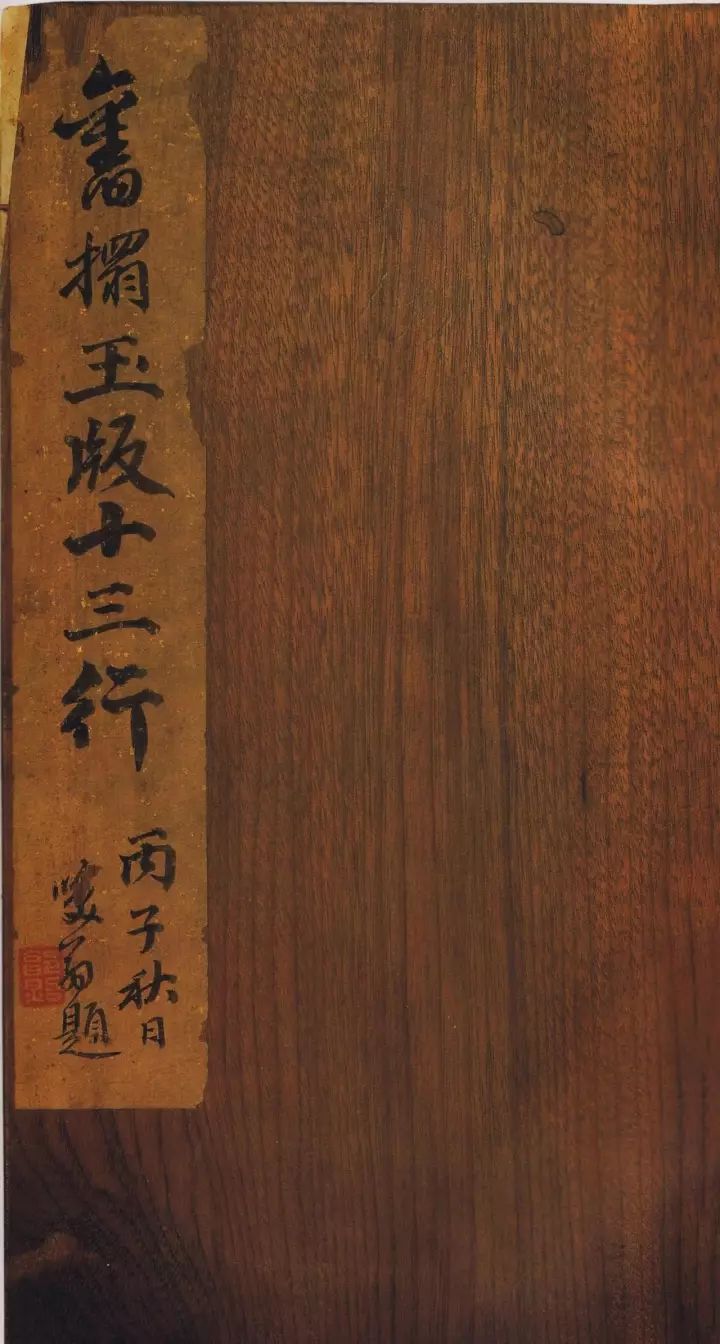 舊搨玉版十三行
丙子秋日
翁題